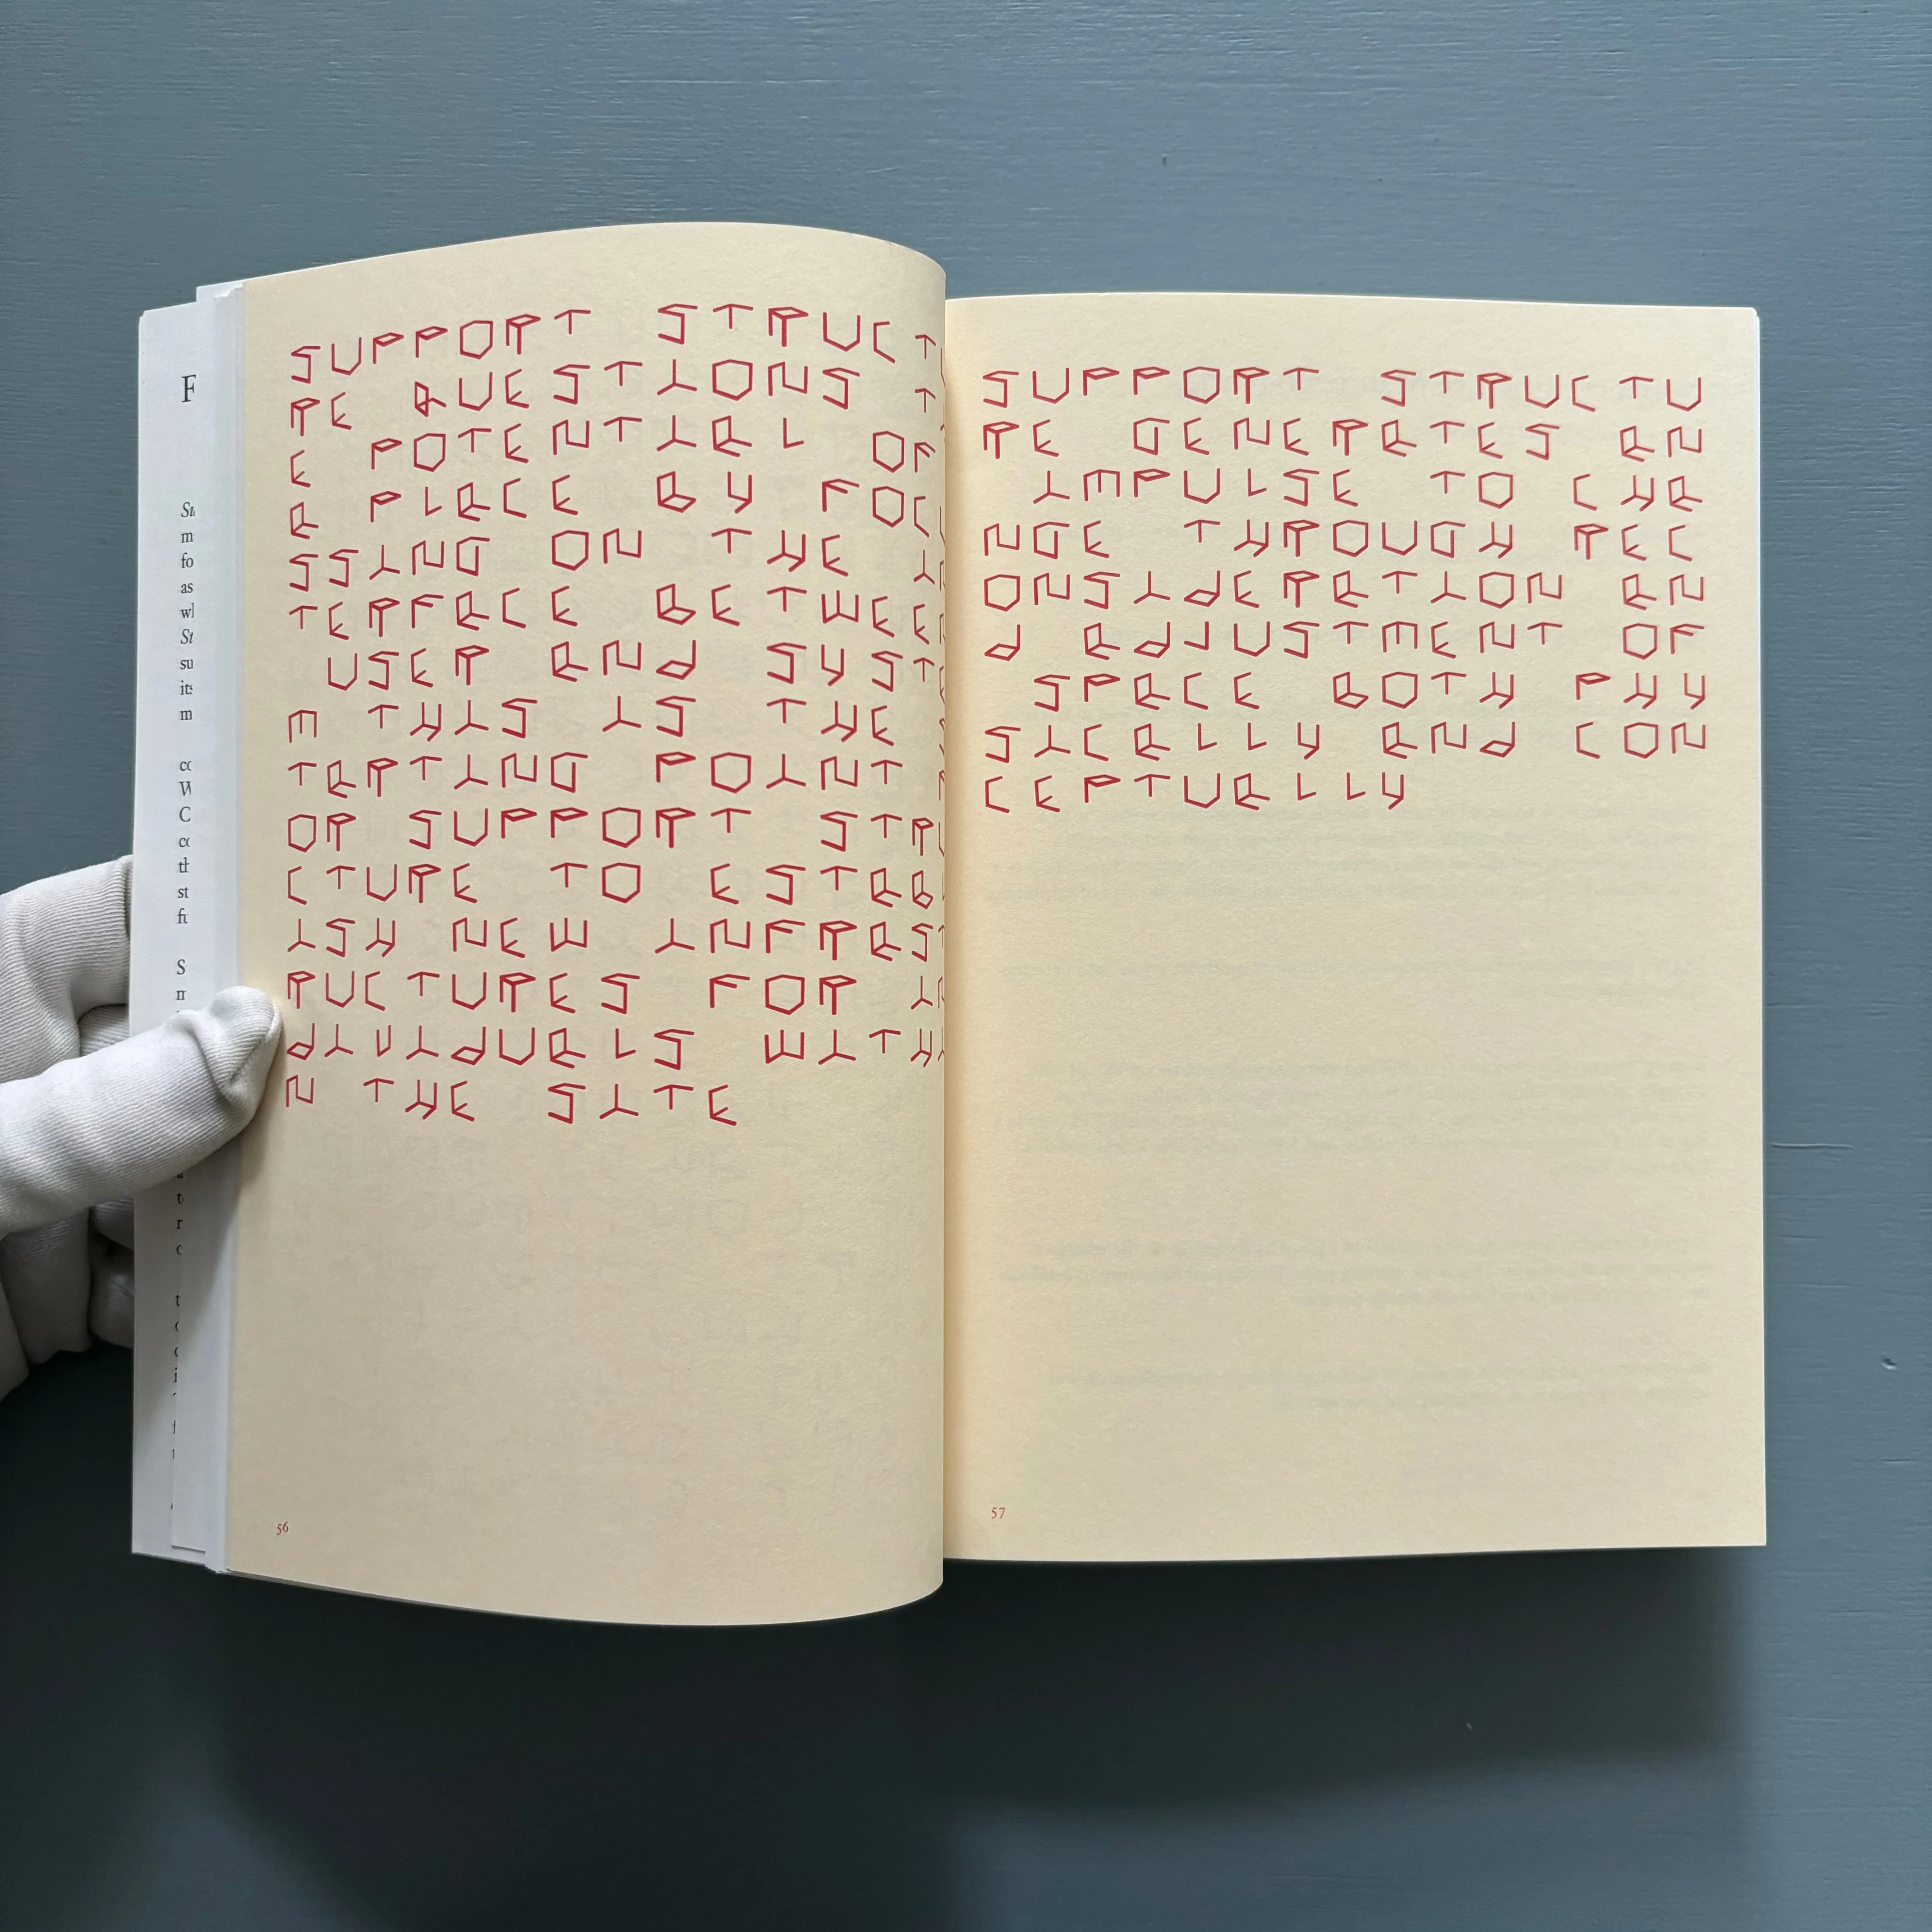 F
SUPPORT STRUCTU
RE QUESTIONS TH
E POTENTIAL OF
A PLACE BY FOCU
SSING ON THE IN
TERFACE BETWEEN
USER AND SYSTE
M THIS IS THE S
TARTING POINT F
OR SUPPORT STRU
CTURE TO ESTABL
ISH NEW INFRAST
RUCTURES FOR IN
DIVIDUALS WITHI
N THE SITE
56
SUPPORT STRUCTU
RE GENERATES AN
IMPULSE TO CHA
NGE THROUGH REC
ONSIDERATION AN
D ADJUSTMENT OF
SPACE BOTH PHY
SICALLY AND CON
CEPTUALLY
57